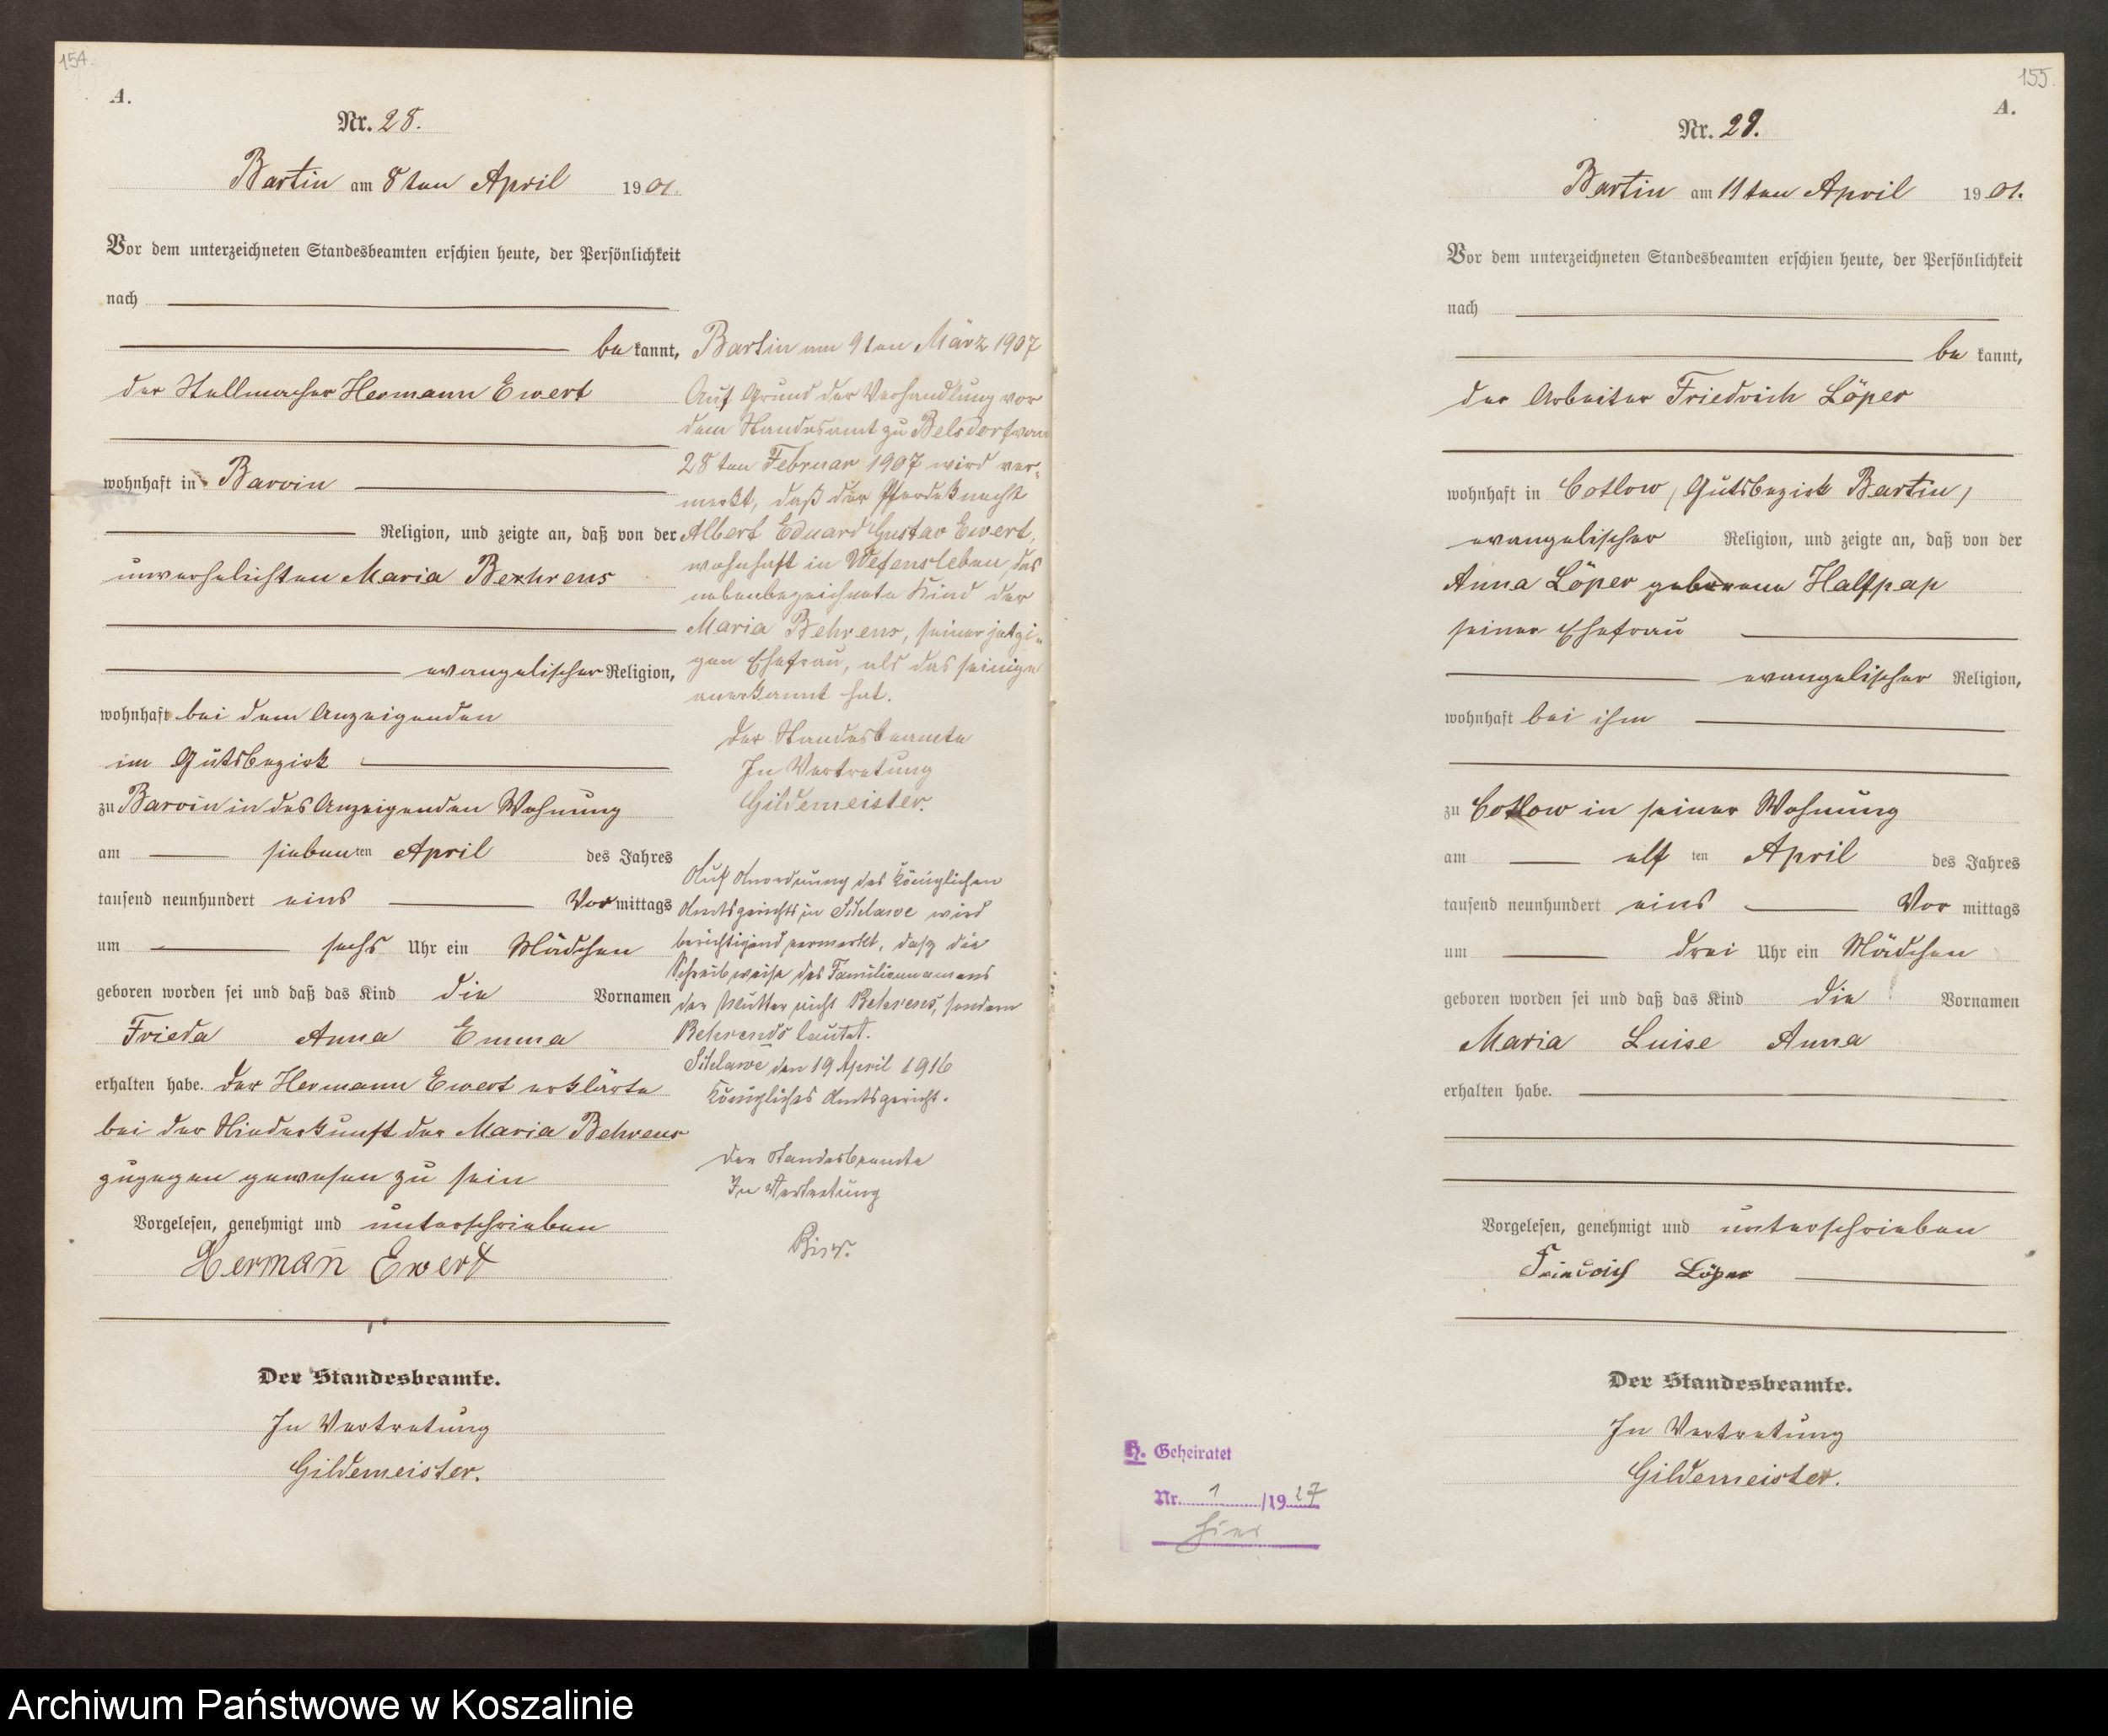 154.
A.
Nr. 28.
Bartin am 8ten April 1901.
Vor dem unterzeichneten Standesbeamten erschien heute, der Persönlichkeit
nach
be kannt,
der Stellmacher Hermann Ewert
wohnhaft in Barvin
Religion, und zeigte an, daß von der
unverehelichten Maria Behrens
evangelischer Religion,
wohnhaft bei dem Anzeigenden
im Gutsbezirk
zu Barvin in des Anzeigenden Wohnung
am siebenten April des Jahres
tausend neunhundert eins Vormittags
um sechs Uhr ein Mädchen
geboren worden sei und daß das Kind die Vornamen
Frieda Anna Emma
erhalten habe. Der Hermann Ewert erklärte
bei der Niederkunft der Maria Behrens
zugegen gewesen zu sein
Vorgelesen, genehmigt und unterschrieben
Herman̄ Ewert
Der Standesbeamte.
In Vertretung
Gildemeister.
Bartin am 9ten März 1907
Auf Grund der Verhandlung vor
dem Standesamt zu Belsdorf vom
28ten Februar 1907 wird ver-
merkt, daß der Pferdeknecht
Albert Eduard Gustav Ewert,
wohnhaft in Wefensleben, das
nebenbezeichnete Kind der
Maria Behrens, seiner jetzi-
gen Ehefrau, als das seinige
anerkannt hat.
Der Standesbeamte
In Vertretung
Gildemeister.
Auf Anordnung des Königlichen
Amtsgerichts in Schlawe wird
berichtigend vermerkt, daß die
Schreibweise des Familiennamens
der Mutter nicht Behrens, sondern
Behrends lautet.
Schlawe den 19 April 1916
Königliches Amtsgericht.
Der Standesbeamte
In Vertretung
155.
A.
Nr. 29.
Bartin am 11ten April 1901.
Vor dem unterzeichneten Standesbeamten erschien heute, der Persönlichkeit
nach
be kannt,
der Arbeiter Friedrich Löper
wohnhaft in Cotlow, Gutsbezirk Bartin,
evangelischer Religion, und zeigte an, daß von der
Anna Löper geborene Halfpap
seiner Ehefrau
evangelischer Religion,
wohnhaft bei ihm
zu Cotlow in seiner Wohnung
am elf ten April des Jahres
tausend neunhundert eins Vor mittags
um drei Uhr ein Mädchen
geboren worden sei und daß das Kind die Vornamen
Maria Luise Anna
erhalten habe.
Vorgelesen, genehmigt und unterschrieben
Friedrich Löper
Der Standesbeamte.
In Vertretung
Gildemeister.
H. Geheiratet
Nr. 1 /1927
hier
Archiwum Państwowe w Koszalinie